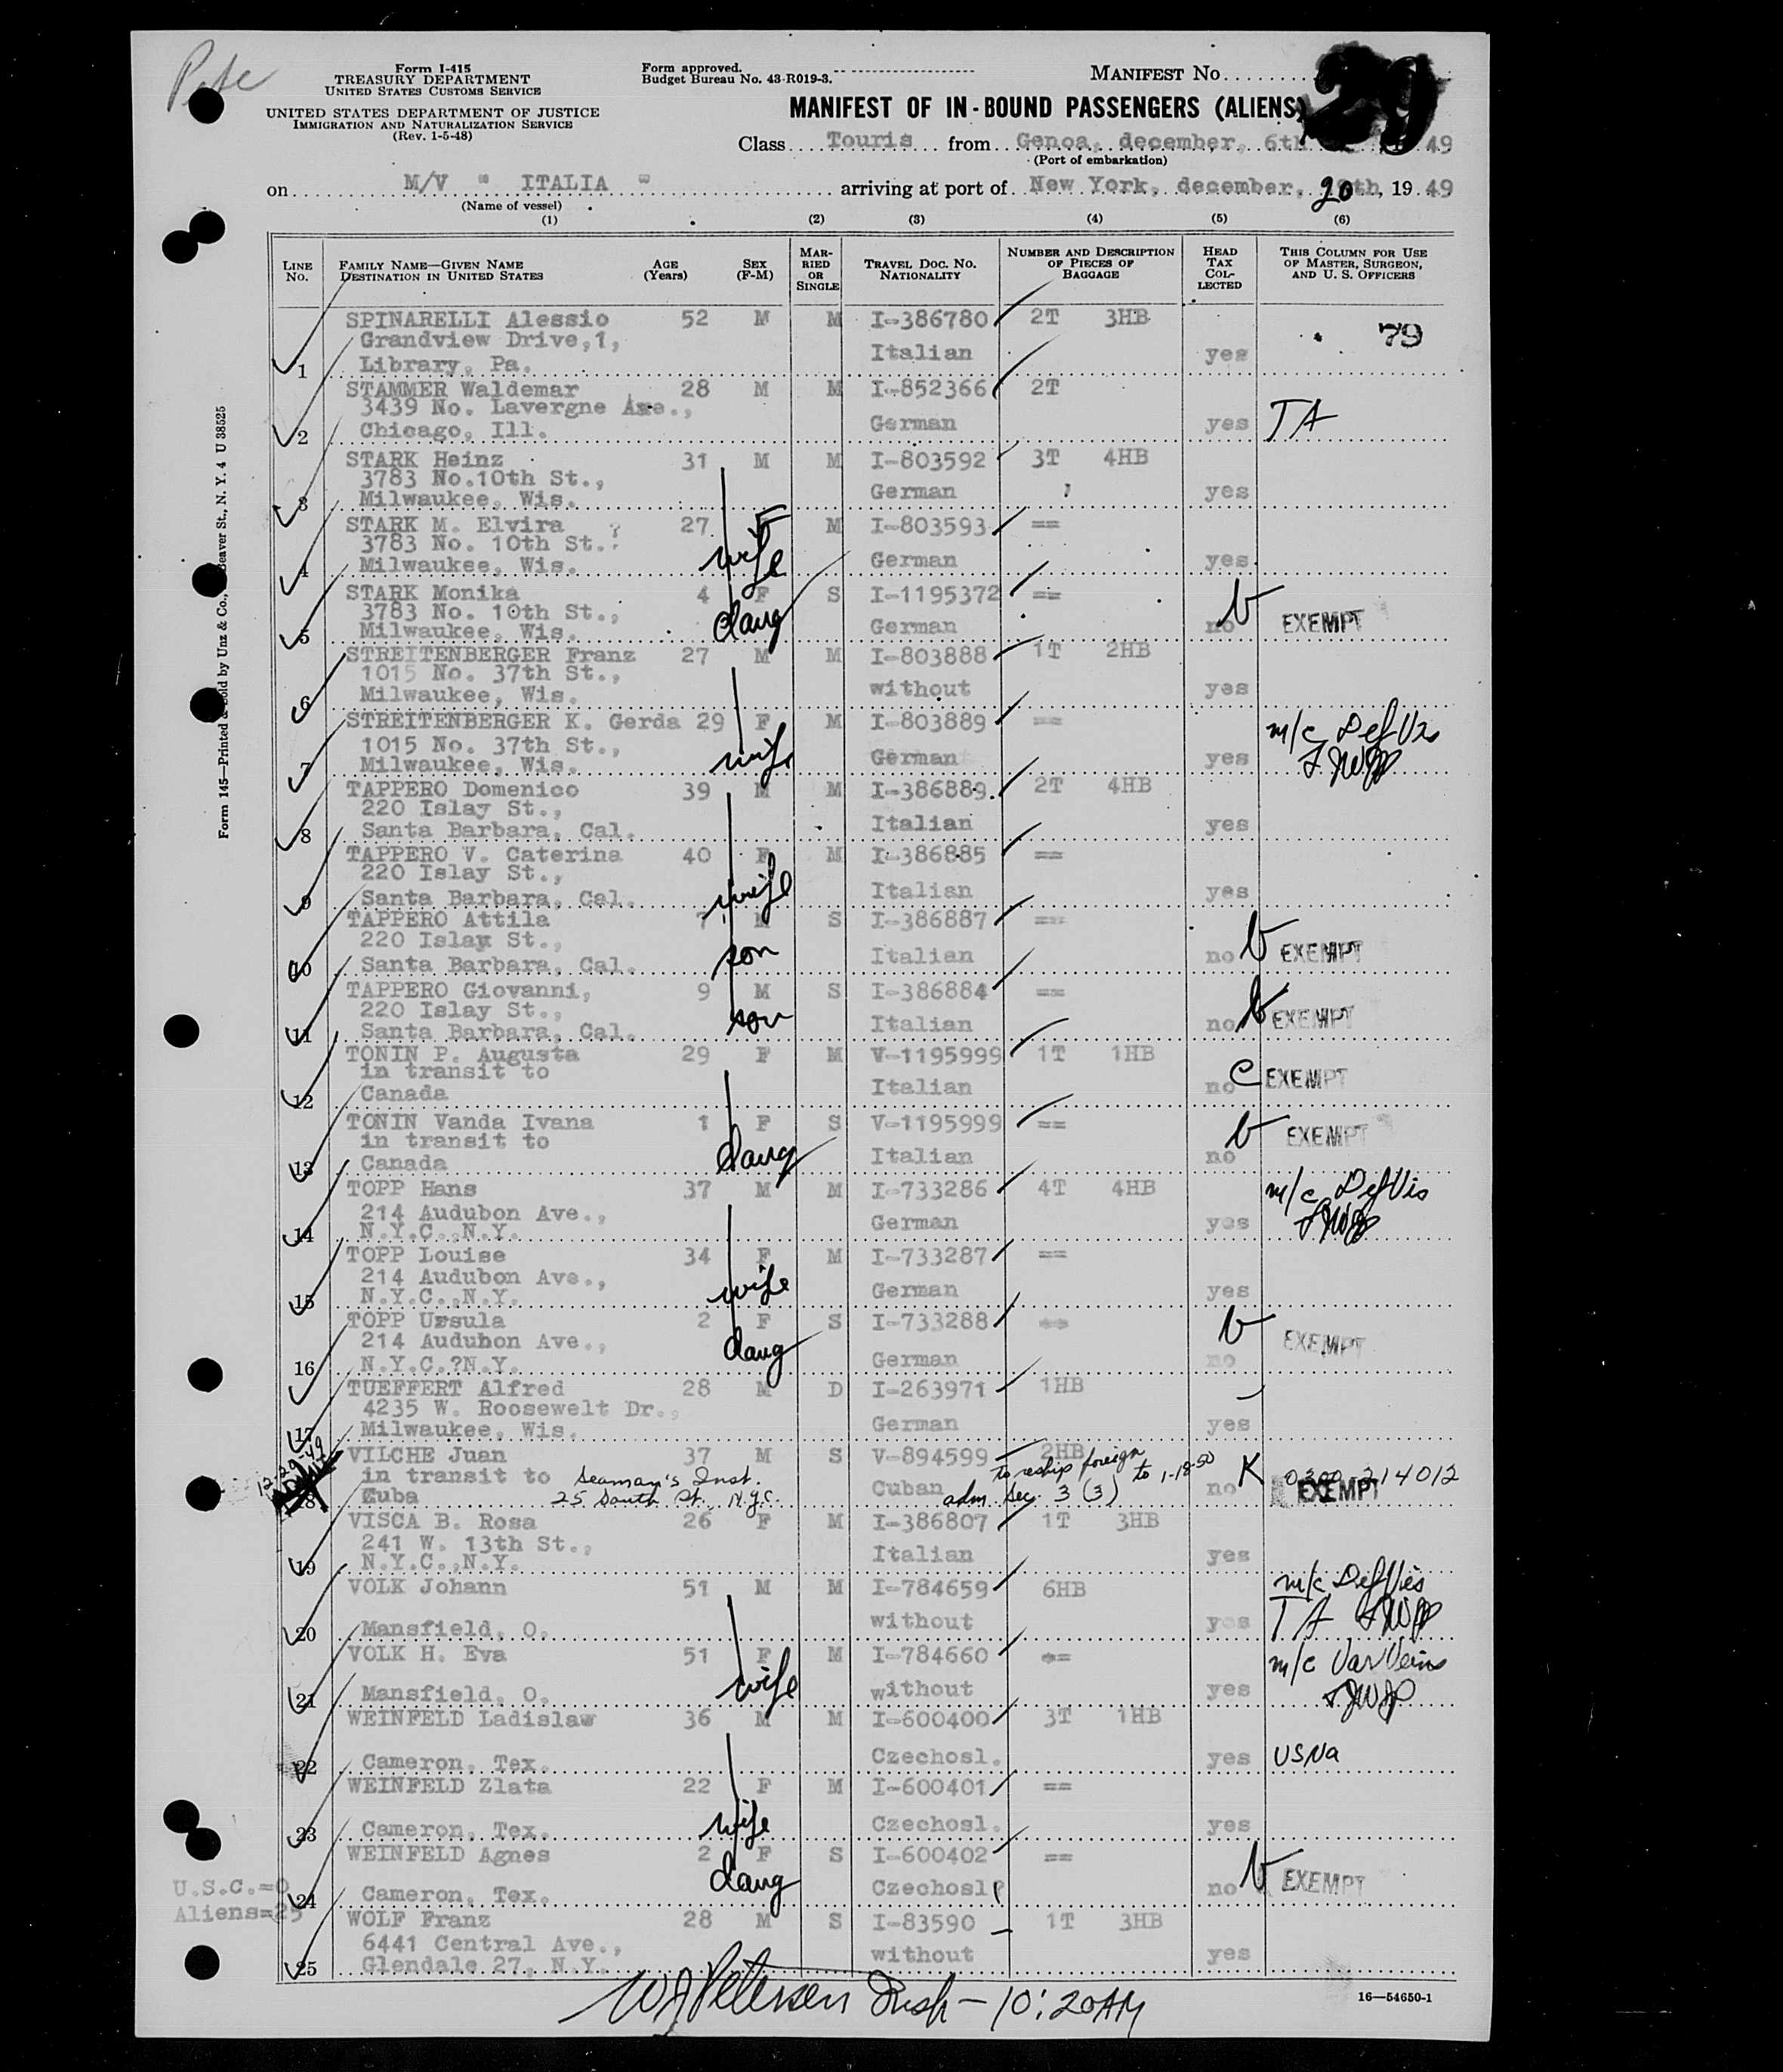 Pete
Form I-415
TREASURY DEPARTMENT
UNITED STATES CUSTOMS SERVICE
UNITED STATES DEPARTMENT OF JUSTICE
IMMIGRATION AND NATURALIZATION SERVICE
(Rev. 1-5-48)
Form approved.
Budget Bureau No. 43-R019-3.
MANIFEST No.
29
MANIFEST OF IN-BOUND PASSENGERS (ALIENS)
Class Touris from Genoa, december, 6th 49
(Port of embarkation)
on M/V " ITALIA " arriving at port of New York, december, 20th, 19 49
(Name of vessel)
(1) (2) (3) (4) (5) (6)
LINE No. FAMILY NAME—GIVEN NAME DESTINATION IN UNITED STATES AGE (Years) SEX (F-M) MARRIED OR SINGLE TRAVEL DOC. No. NATIONALITY NUMBER AND DESCRIPTION OF PIECES OF BAGGAGE HEAD TAX COLLECTED THIS COLUMN FOR USE OF MASTER, SURGEON, AND U. S. OFFICERS
SPINARELLI Alessio 52 M M I-386780 2T 3HB 79
Grandview Drive,1,
Italian yes
1 Library, Pa.
STAMMER Waldemar 28 M M I-852366 2T
3439 No. Lavergne Axe.,
German yes TA
2 Chicago, Ill.
STARK Heinz 31 M M I-803592 3T 4HB
3783 No.10th St.,
German yes
3 Milwaukee, Wis.
STARK M. Elvira 27 F M I-803593 ==
3783 No. 10th St.,
wife German yes
4 Milwaukee, Wis.
STARK Monika 4 F S I-1195372 ==
3783 No. 10th St.,
daug German no EXEMPT
5 Milwaukee, Wis.
STREITENBERGER Franz 27 M M I-803888 1T 2HB
1015 No. 37th St.,
without yes
6 Milwaukee, Wis.
STREITENBERGER K. Gerda 29 F M I-803889 == m/c Def Vis
1015 No. 37th St.,
wife German yes
7 Milwaukee, Wis.
TAPPERO Domenico 39 M M I-386889. 2T 4HB
220 Islay St.,
Italian yes
8 Santa Barbara, Cal.
TAPPERO V. Caterina 40 F M I-386885 ==
220 Islay St.,
wife Italian yes
9 Santa Barbara, Cal.
TAPPERO Attila 7 M S I-386887 ==
220 Islay St.,
son Italian no EXEMPT
10 Santa Barbara, Cal.
TAPPERO Giovanni, 9 M S I-386884 ==
220 Islay St.,
son Italian no EXEMPT
11 Santa Barbara, Cal.
TONIN P. Augusta 29 F M V-1195999 1T 1HB
in transit to
Italian no C EXEMPT
12 Canada
TONIN Vanda Ivana 1 F S V-1195999 ==
in transit to
daug Italian no EXEMPT
13 Canada
TOPP Hans 37 M M I-733286 4T 4HB m/c Def Vis
214 Audubon Ave.,
German yes
14 N.Y.C.,N.Y.
TOPP Louise 34 F M I-733287 ==
214 Audubon Ave.,
wife German yes
15 N.Y.C.,N.Y.
TOPP Ursula 2 F S I-733288 ==
214 Auduhon Ave.,
daug German no EXEMPT
16 N.Y.C.?N.Y.
TUEFFERT Alfred 28 M D I-263971 1HB
4235 W. Roosewelt Dr.,
German yes
17 Milwaukee, Wis.
12-29-49
VILCHE Juan 37 M S V-894599 2HB
in transit to Seaman's Inst. to reship foreign to 1-18-50 K 0300 214012
18 Cuba 25 South St., N.Y.C. Cuban adm Sec. 3 (3) no EXEMPT
VISCA B. Rosa 26 F M I-386807 1T 3HB
241 W. 13th St.,
Italian yes
19 N.Y.C.,N.Y.
VOLK Johann 51 M M I-784659 6HB m/c Def Vis
without yes TA
20 Mansfield, O.
VOLK H. Eva 51 F M I-784660 == m/c Var Veins
wife without yes
21 Mansfield, O.
WEINFELD Ladislaw 36 M M I-600400 3T 1HB
Czechosl. yes USNa
22 Cameron, Tex.
WEINFELD Zlata 22 F M I-600401 ==
wife Czechosl. yes
23 Cameron, Tex.
WEINFELD Agnes 2 F S I-600402 ==
daug Czechosl. no EXEMPT
24 Cameron, Tex.
U.S.C.=0
Aliens=25
WOLF Franz 28 M S I-83590 1T 3HB
6441 Central Ave.,
without yes
25 Glendale 27, N.Y.
WJ Petersen Insp — 10:20 AM
16—54650-1
Form 145—Printed & Sold by Unz & Co., Beaver St., N. Y. 4 U 38525